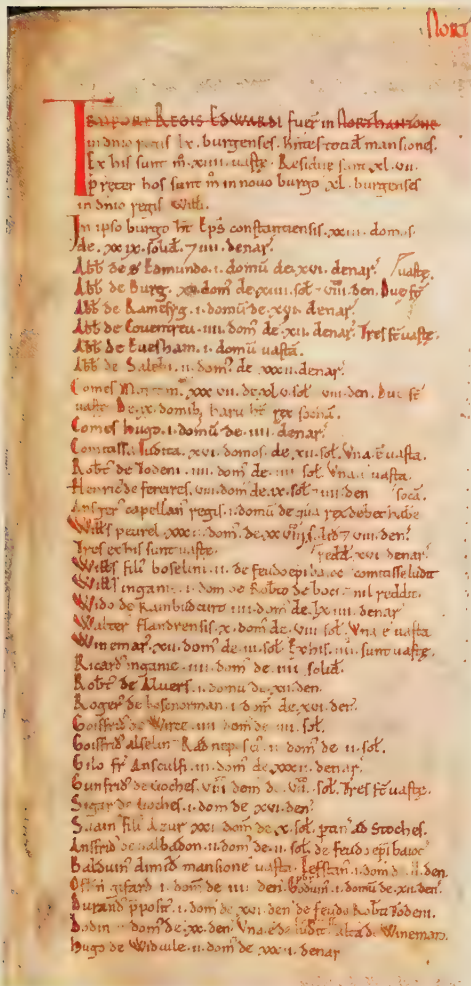 Nort
TEMPORE REGIS EDWARDI fuer̄ in NORTHANTONE
in dn̄io regis .lx. burgenses. hn̄tes totid mansiones.
Ex his sunt m̊ .xiiii. uastȩ. Residuȩ sunt .xl.vii.
preter hos sunt m̊ in nouo burgo .xl. burgenses
in dn̄io regis Willi.
In ipso burgo ht̄ Eps constantiensis .xxiii. domos
de .xxix. solid. ⁊ iiii. denar.
Abb de S Edmundo .i. domū de .xvi. denar. uastȩ.
Abb de Burg. xv. dom de xiiii. sol ⁊ viii. den. Duȩ st̄
Abb de Ramesyg .i. domū de .xvi. denar.
Abb de Couentreu .iiii. dom de .xii. denar. Tres st̄ uastȩ.
Abb de Euesham .i. domū uastā.
Abb de Salebi .ii. dom de .xxxii. denar.
Comes xxxvii. de .xlv. sol viii. den. Duȩ st̄
uastȩ. De .ix. domib; haru ht̄ rex socā.
Comes hugo .i. domū de .iiii. denar.
Comitissa Iudita .xvi. domos de .xii. sol. Vna ē uasta.
Robt de Todeni .iiii. dom de .iiii. sol. Vna ē uasta.
Henric de fereires .viii. dom de .ix. sol ⁊ iiii. den socā.
Ansger capellan regis .i. domū de qua rex debet habe
Wills peurel .xxxii. dom de .xxviii. sol ⁊ viii. den.
Tres ex his sunt uastȩ. redd xvi denar.
Wills fili boselini .ii. de feudo epi baioc comitissȩ Iudit
Wills inganie .i. dom de Robto de boci. nil reddit.
Wido de Rainbudcurt iiii. dom de .lxiiii. denar
Walter flandrensis .x. dom de .viii. sol. Vna ē uasta
Winemar .xii. dom de .iii. sol. Ex his .iiii. sunt uastȩ.
Ricard inganie .iiii. dom de .iiii. solid.
Robt de Aluers .i. domū de .xii. den.
Roger de bosenorman .i. dom de .xvi. den.
Goisfrid de Wirce .iiii. dom de .iiii. sol.
Goisfrid alselin ⁊ Rad nep suus .ii. dom de .ii. sol.
Gilo fr̄ Ansculfi .iii. dom de .xxxii. denar.
Gunfrid de Cioches .viii. dom de .viii. sol. Tres st̄ uastȩ.
Sigar de Cioches .i. dom de .xvi. den.
Suain fili Azur xxi. dom de .x. sol. ptin ad Stoches.
Ansfrid de ualbadon .ii. dom de .ii. sol. de feudo epi baioc
Balduin dimid mansione uasta. Lefstan .i. dom de .iiii. den.
Osbn gifard .i. dom de .iiii. den. Goduin pbr .i. domū de .xii. den.
Durand pposit .i. dom de .xvi. den de feudo Robti Todeni.
Dodin .ii. dom de .xx. den. Vna ē de Iudita. alta de Winemaro.
Hugo de Widuile .ii. dom de .xxxii. denar